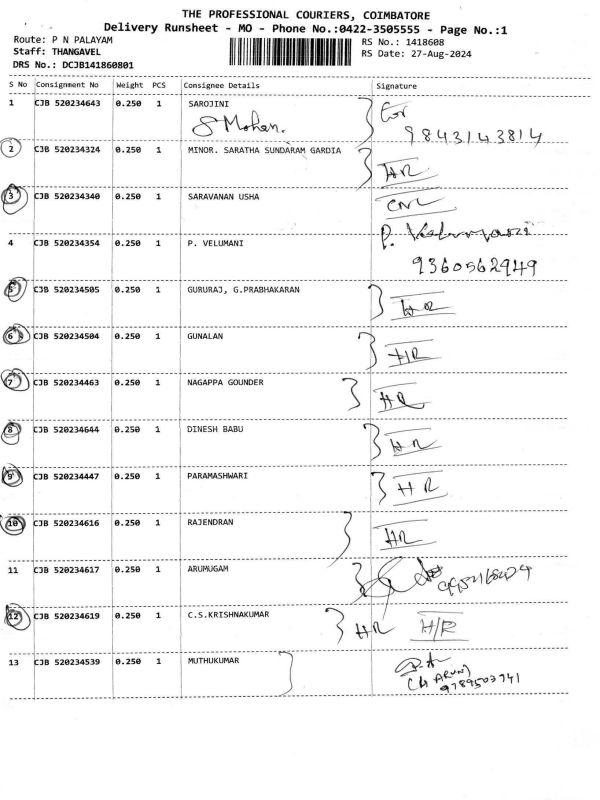 THE PROFESSIONAL COURIERS, COIMBATORE
Delivery Runsheet - MO - Phone No.:0422-3505555 - Page No.:1
Route: P N PALAYAM
RS No.: 1418608
Staff: THANGAVEL
RS Date: 27-Aug-2024
DRS No.: DCJB141860801
S No Consignment No Weight PCS Consignee Details Signature
1 CJB 520234643 0.250 1 SAROJINI
S Mohan.
9843143814
2 CJB 520234324 0.250 1 MINOR. SARATHA SUNDARAM GARDIA
HR
3 CJB 520234340 0.250 1 SARAVANAN USHA
CNL
4 CJB 520234354 0.250 1 P. VELUMANI
P. Velumani
9360562949
5 CJB 520234505 0.250 1 GURURAJ, G.PRABHAKARAN
HR
6 CJB 520234504 0.250 1 GUNALAN
HR
7 CJB 520234463 0.250 1 NAGAPPA GOUNDER
HR
8 CJB 520234644 0.250 1 DINESH BABU
HR
9 CJB 520234447 0.250 1 PARAMASHWARI
HR
10 CJB 520234616 0.250 1 RAJENDRAN
HR
11 CJB 520234617 0.250 1 ARUMUGAM
12 CJB 520234619 0.250 1 C.S.KRISHNAKUMAR
HR H/R
13 CJB 520234539 0.250 1 MUTHUKUMAR
ARUN)
9789503741